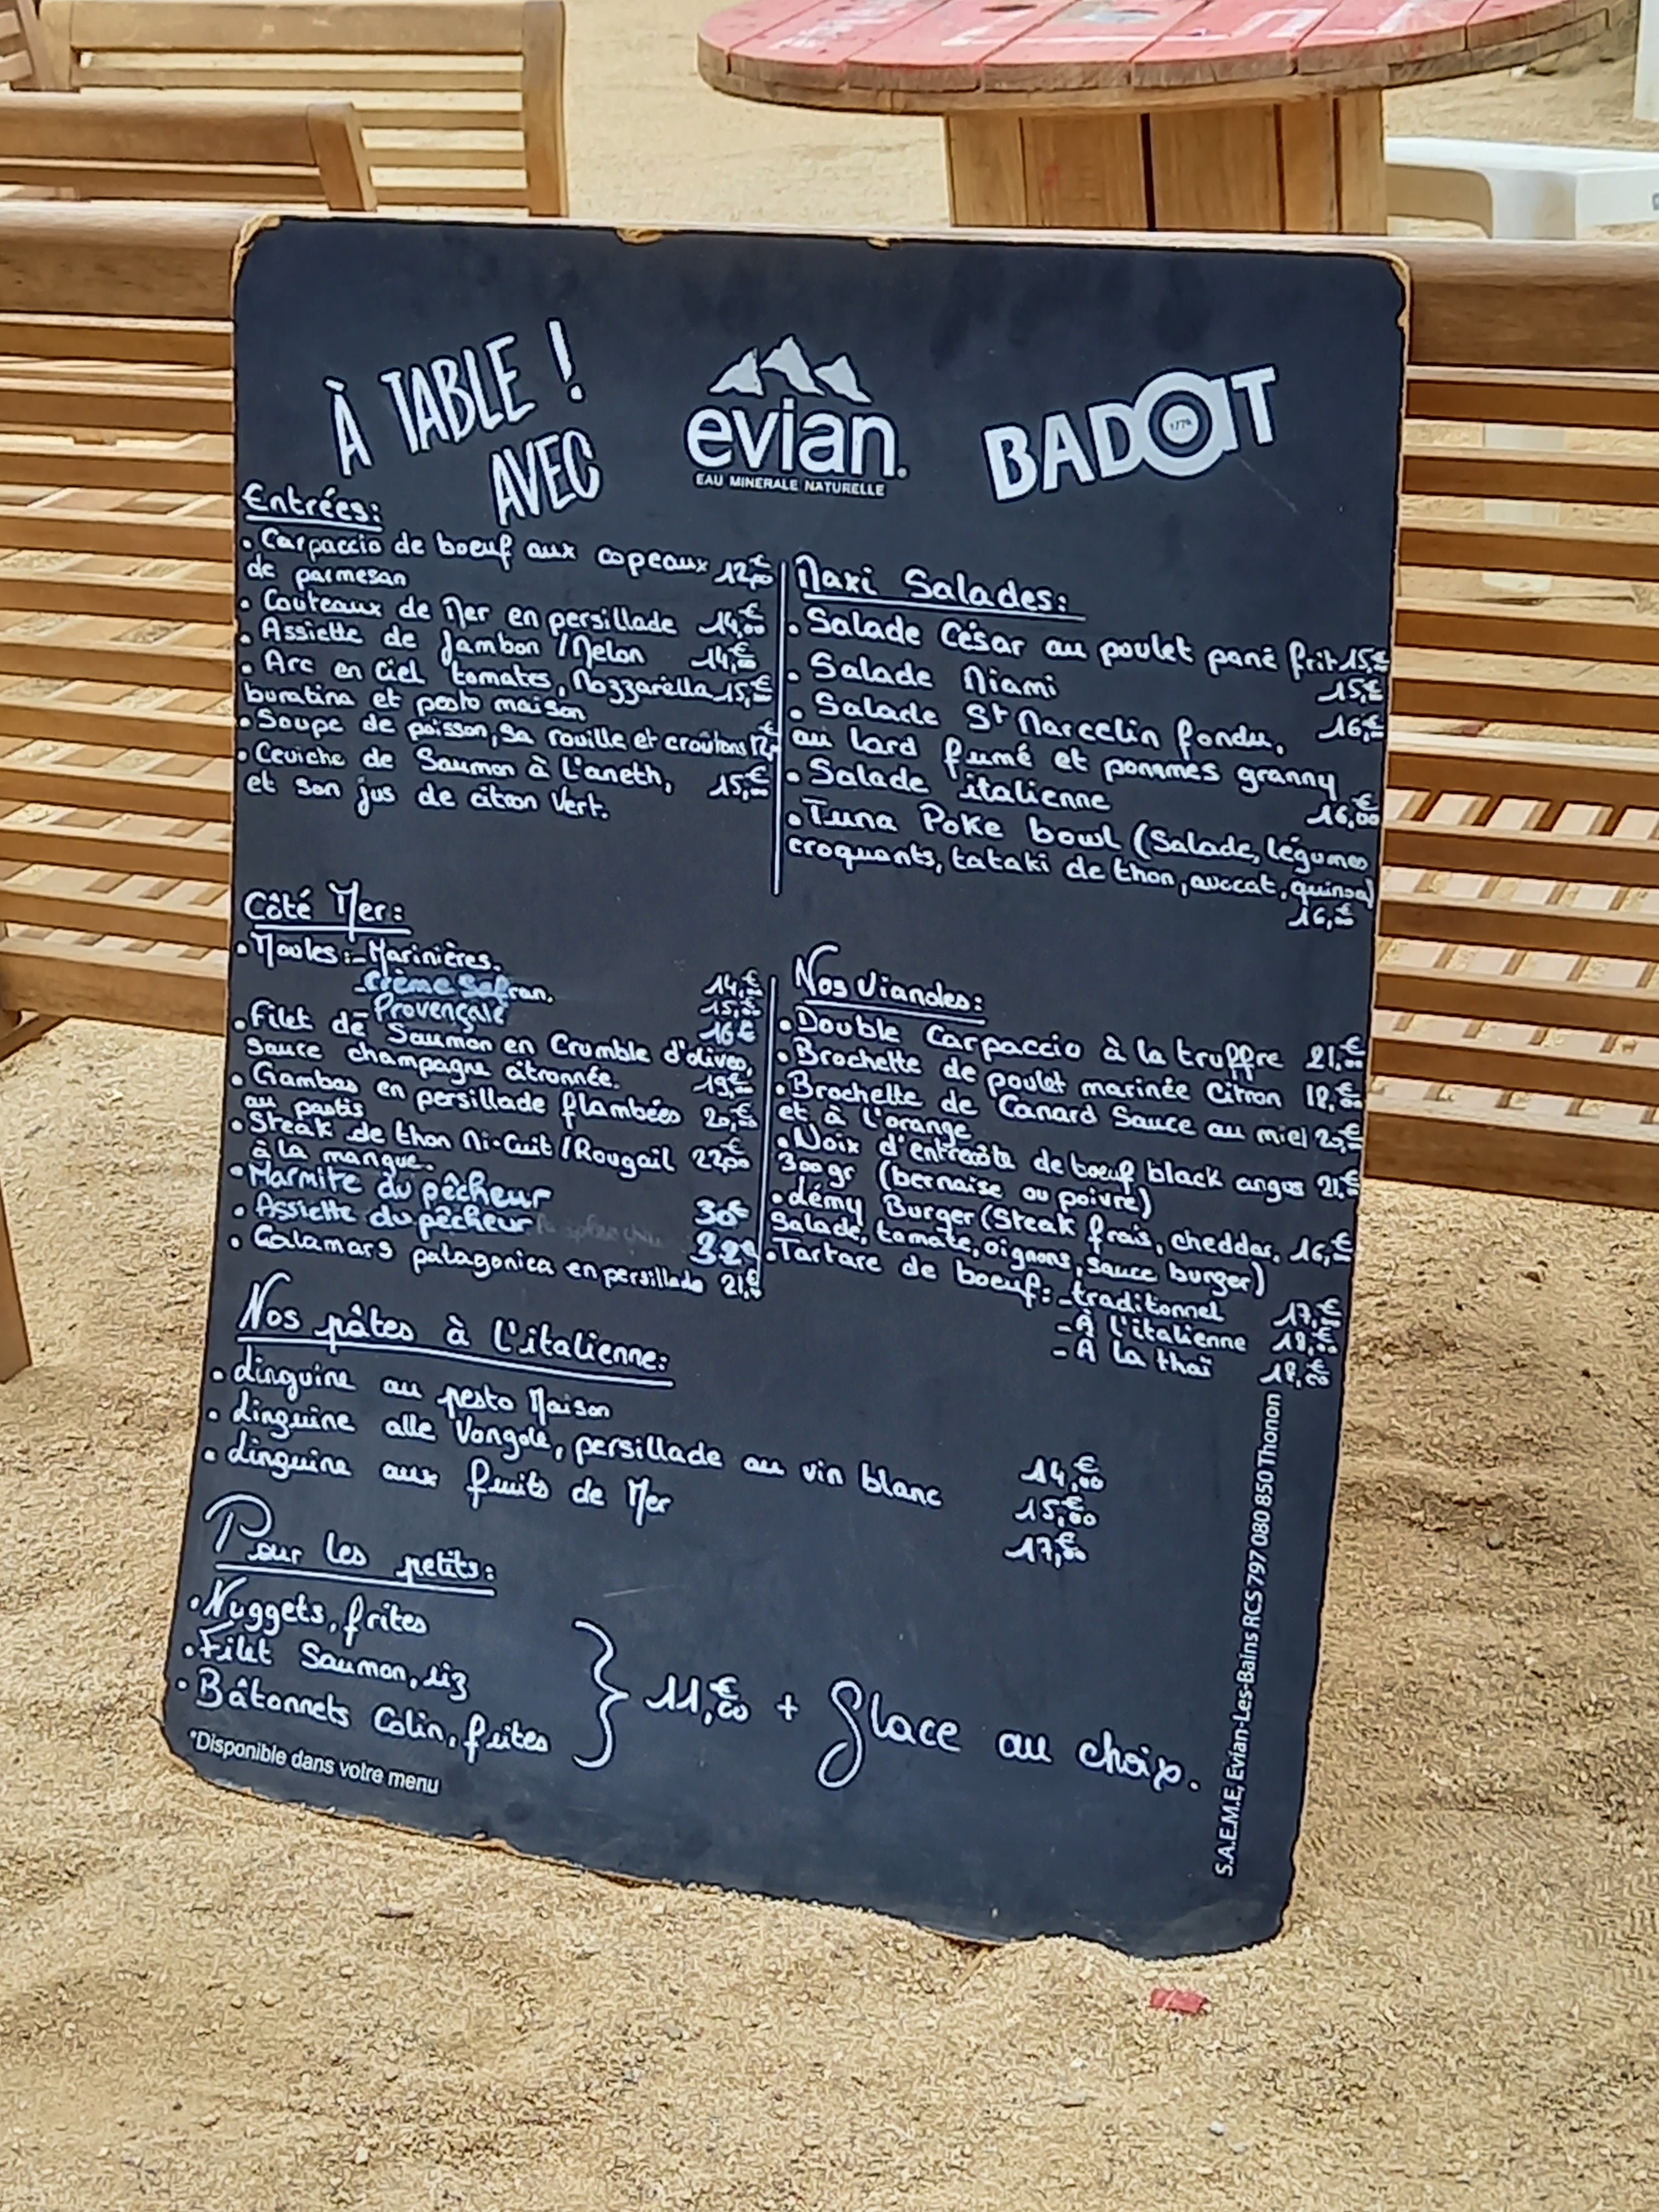 À TABLE !
AVEC
evian.
EAU MINERALE NATURELLE
BADOIT
Entrées:
• Carpaccio de boeuf aux copeaux 12,00€
de parmesan
• Couteaux de Mer en persillade 14,00€
• Assiette de Jambon / Melon 14,00€
• Arc en Ciel tomates, Mozzarella 15,00€
buratina et pesto maison
• Soupe de poisson, sa rouille et croûtons
• Ceviche de Saumon à l'aneth, 15,00€
et son jus de citron Vert.
Maxi Salades:
• Salade César au poulet pané frit 15,00€
• Salade Miami 15,00€
• Salade St Marcelin fondu, 16,00€
au lard fumé et pommes granny
• Salade italienne 16,00€
• Tuna Poke bowl (Salade, légumes
croquants, tataki de thon, avocat, quinoa)
16,00€
Côté Mer:
• Moules: - Marinières. 14,00€
- Crème Safran. 15,00€
- Provençale 16€
• Filet de Saumon en Crumble d'olives,
Sauce champagne citronnée. 19,00€
• Gambas en persillade flambées 20,00€
au pastis
• Steak de thon Mi-Cuit / Rougail 22,00€
à la mangue.
• Marmite du pêcheur 30€
• Assiette du pêcheur 32€
• Calamars patagonica en persillade 21,00€
Nos Viandes:
• Double Carpaccio à la truffre 21,00€
• Brochette de poulet marinée Citron 18,00€
• Brochette de Canard Sauce au miel 20,00€
et à l'orange
• Noix d'entrecôte de boeuf black angus 21,00€
300gr (bernaise ou poivre)
• Lémy Burger (Steak frais, cheddar, 16,00€
Salade, tomate, oignons, sauce burger)
• Tartare de boeuf: - traditonnel 17,00€
- À l'italienne 18,00€
- À la thaï 18,00€
Nos pâtes à l'italienne:
• Linguine au pesto Maison 14,00€
• Linguine alle Vongole, persillade au vin blanc 15,00€
• Linguine aux fruits de Mer 17,00€
Pour les petits:
• Nuggets, frites
• Filet Saumon, riz
• Bâtonnets Colin, frites
11,00€ + Glace au choix.
*Disponible dans votre menu
S.A.E.M.E, Evian-Les-Bains RCS 797 080 850 Thonon